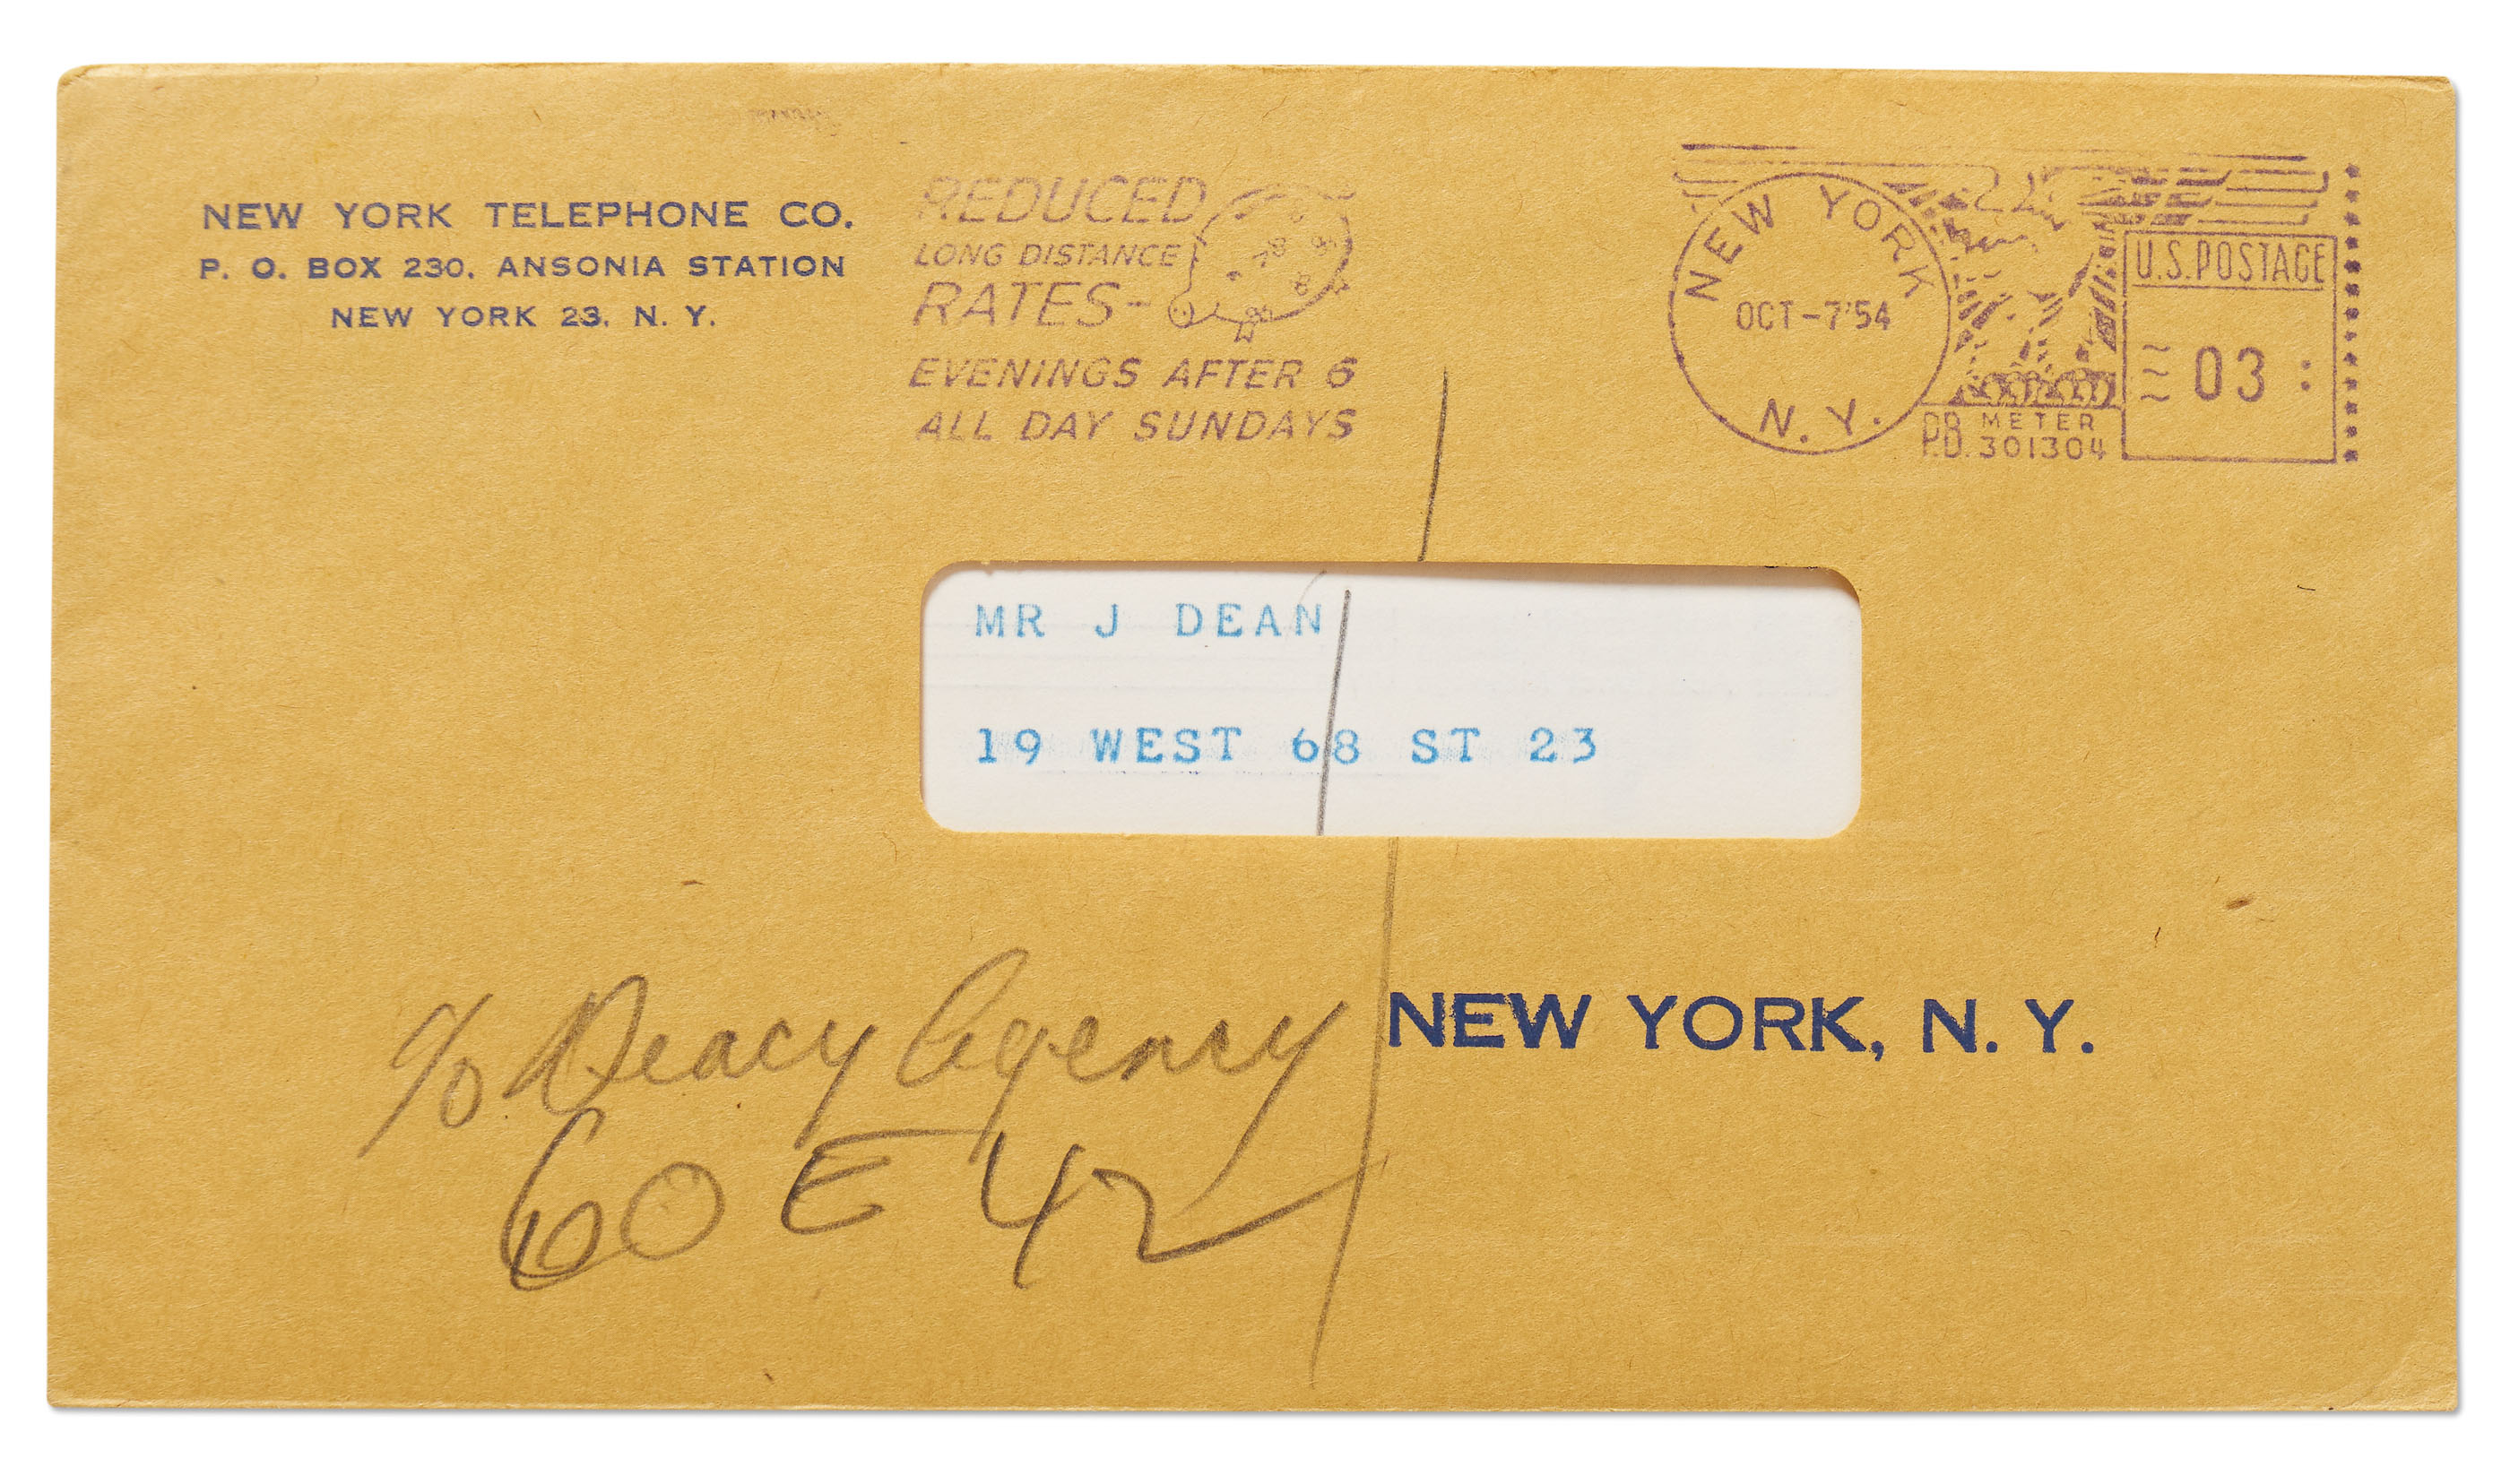 NEW YORK TELEPHONE CO.
P. O. BOX 230, ANSONIA STATION
NEW YORK 23, N. Y.
REDUCED
LONG DISTANCE
RATES-
EVENINGS AFTER 6
ALL DAY SUNDAYS
NEW YORK
OCT-7'54
N.Y.
P.B. METER
301304
U.S. POSTAGE
03
MR J DEAN
19 WEST 68 ST 23
NEW YORK, N. Y.
c/o Deacy Agency
60 E 42